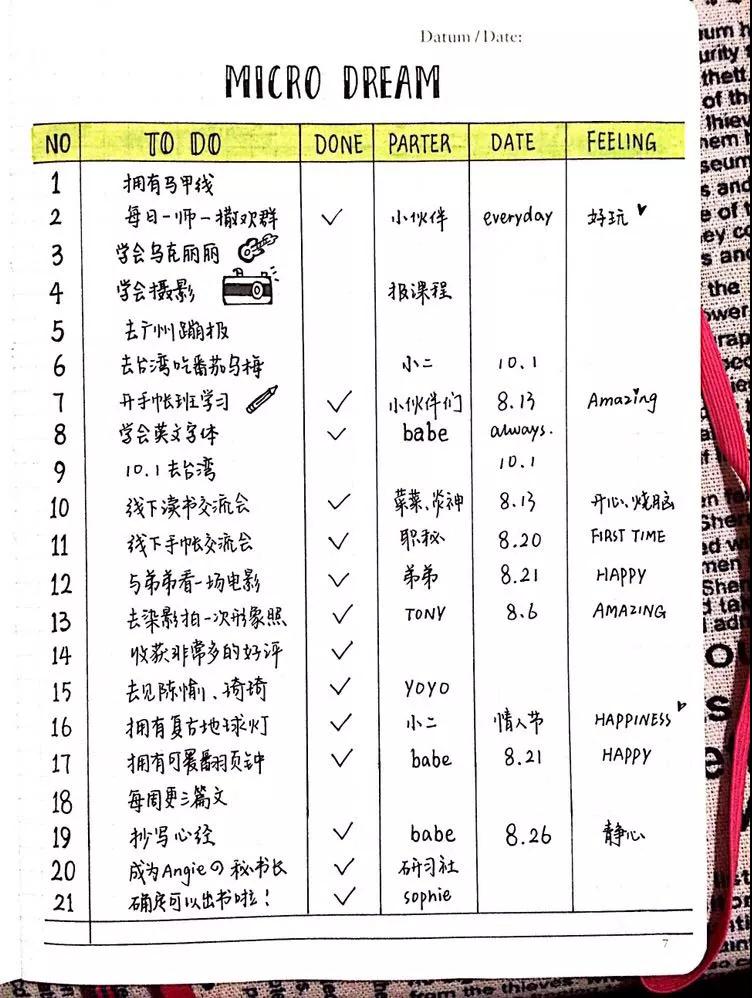 Datum / Date:
MICRO DREAM
NO TO DO DONE PARTER DATE FEELING
1 拥有马甲线
2 每日一师一撒欢群 ✓ 小伙伴 everyday 好玩
3 学会乌克丽丽
4 学会摄影 报课程
5 去广州蹦极
6 去台湾吃番茄乌梅 小二 10.1
7 开手帐班学习 ✓ 小伙伴们 8.13 Amazing
8 学会英文字体 ✓ babe always.
9 10.1去台湾 10.1
10 线下读书交流会 ✓ 菜菜、炎神 8.13 开心、烧脑
11 线下手帐交流会 ✓ 职秘 8.20 FIRST TIME
12 与弟弟看一场电影 ✓ 弟弟 8.21 HAPPY
13 去染影拍一次形象照 ✓ TONY 8.6 AMAZING
14 收获非常多的好评 ✓
15 去见陈愉、琦琦 ✓ YOYO
16 拥有复古地球灯 ✓ 小二 情人节 HAPPINESS
17 拥有可爱翻页钟 ✓ babe 8.21 HAPPY
18 每周更三篇文
19 抄写心经 ✓ babe 8.26 静心
20 成为Angieの秘书长 ✓ 研习社
21 确定可以出书啦！ ✓ sophie
7